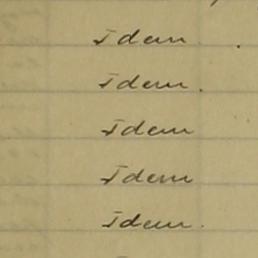 Idem
Idem.
Idem
Idem
Idem.